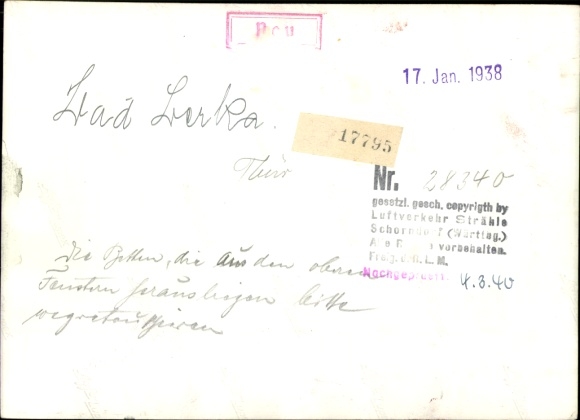 Neu
17. Jan. 1938
Bad Berka.
17795
Thür
Nr. 28340
gesetzl. gesch. copyrigth by
Luftverkehr Strähle
Schorndorf (Württbg.)
vorbehalten.
Freig. d. R. L. M.
Nachgeprüft: 4.3.40
Die Betten, die aus den oberen
Fenstern heraushängen bitte
wegretouchieren